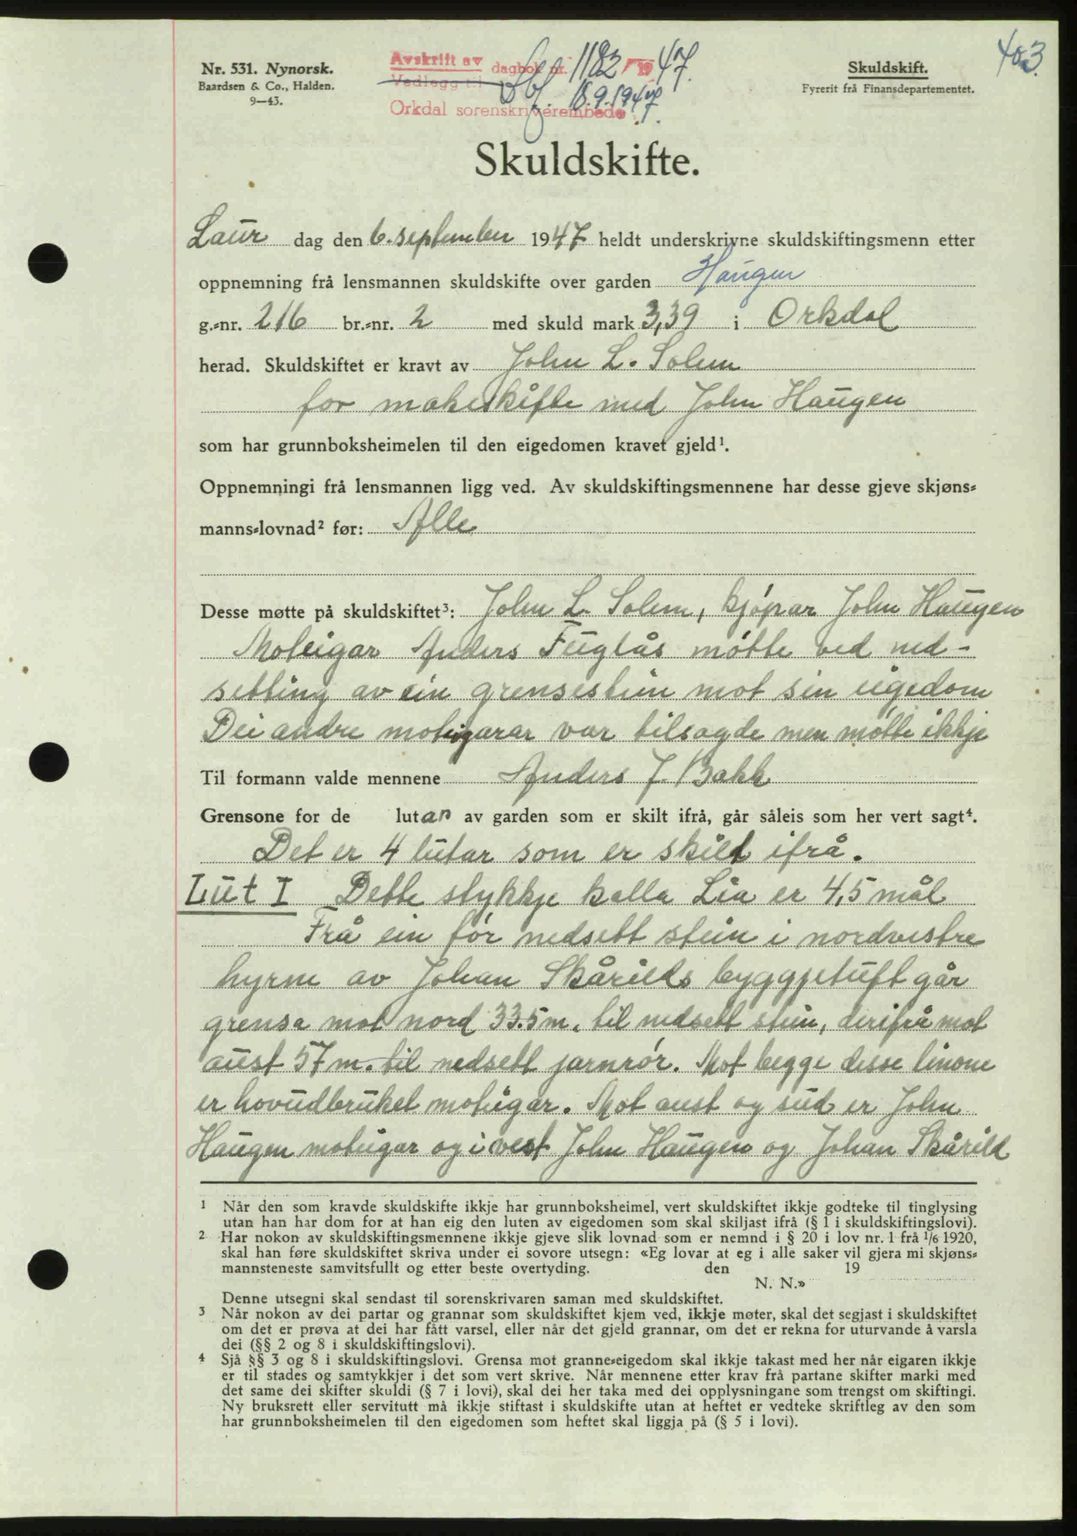 403
Nr. 531. Nynorsk.
Baardsen & Co., Halden.
9—43.
Avskrift av dagbok nr. 1182 1947.
Vedlegg til
18.9.1947
Orkdal sorenskriverembede
Skuldskift.
Fyrerit frå Finansdepartementet.
Skuldskifte.
Laur dag den 6. september 1947 heldt underskrivne skuldskiftingsmenn etter
oppnemning frå lensmannen skuldskifte over garden Haugen
g.-nr. 216 br.-nr. 2 med skuld mark 3,39 i Orkdal
herad. Skuldskiftet er kravt av John L. Solem
for makeskifte med John Haugen
som har grunnboksheimelen til den eigedomen kravet gjeld¹.
Oppnemningi frå lensmannen ligg ved. Av skuldskiftingsmennene har desse gjeve skjøns-
manns-lovnad² før: Alle
Desse møtte på skuldskiftet³: John L. Solem, kjöpar John Haugen
Moteigar Anders Fuglås mötte ved ned-
setting av ein grensestein mot sin eigedom
Dei andre moteigarar var tilsagde men mötte ikkje
Til formann valde mennene Anders J. Bakk
Grensone for de lutar av garden som er skilt ifrå, går såleis som her vert sagt⁴.
Det er 4 lutar som er skilt ifrå.
Lut I Dette stykkje kalla Lia er 4,5 mål
Frå ein för nedsett stein i nordvestre
hyrne av Johan Skårilds byggjetuft går
grensa mot nord 33.5 m. til nedsett stein, derifrå mot
aust 57 m. til nedsett jarnrör. Mot begge desse linone
er hovudbruket moteigar. Mot aust og sud er John
Haugen moteigar og i vest John Haugen og Johan Skårild
¹ Når den som kravde skuldskifte ikkje har grunnboksheimel, vert skuldskiftet ikkje godteke til tinglysing
utan han har dom for at han eig den luten av eigedomen som skal skiljast ifrå (§ 1 i skuldskiftingslovi).
² Har nokon av skuldskiftingsmennene ikkje gjeve slik lovnad som er nemnd i § 20 i lov nr. 1 frå 1/6 1920,
skal han føre skuldskiftet skriva under ei sovore utsegn: «Eg lovar at eg i alle saker vil gjera mi skjøns-
mannsteneste samvitsfullt og etter beste overtyding. den 19
N. N.»
Denne utsegni skal sendast til sorenskrivaren saman med skuldskiftet.
³ Når nokon av dei partar og grannar som skuldskiftet kjem ved, ikkje møter, skal det segjast i skuldskiftet
om det er prøva at dei har fått varsel, eller når det gjeld grannar, om det er rekna for uturvande å varsla
dei (§§ 2 og 8 i skuldskiftingslovi).
⁴ Sjå §§ 3 og 8 i skuldskiftingslovi. Grensa mot granne-eigedom skal ikkje takast med her når eigaren ikkje
er til stades og samtykkjer i det som vert skrive. Når mennene etter krav frå partane skifter marki med
det same dei skifter skuldi (§ 7 i lovi), skal dei her taka med dei opplysningane som trengst om skiftingi.
Ny bruksrett eller servitutt må ikkje stiftast i skuldskifte utan at heftet er vedteke skriftleg av den som
har grunnboksheimelen til den eigedomen som heftet skal liggja på (§ 5 i lovi).